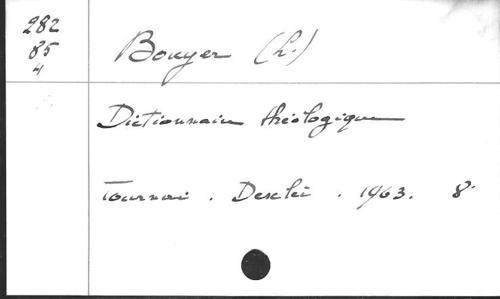 282
85
4
Bouyer (L.)
Dictionnaire théologique
Tournai . Desclée . 1963. 8°